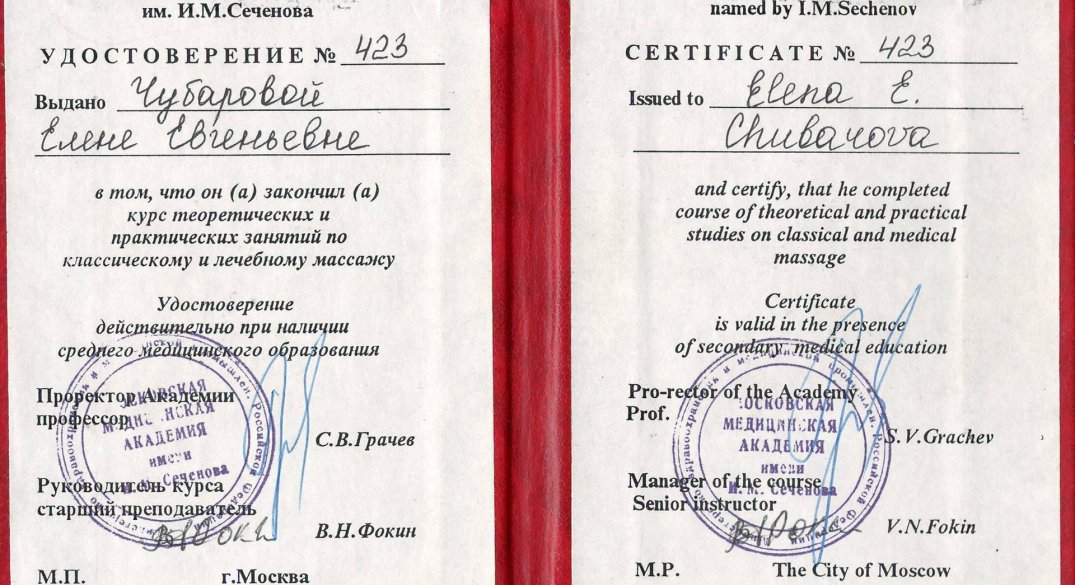 им. И.М.Сеченова
УДОСТОВЕРЕНИЕ № 423
Выдано Чубаровой
Елене Евгеньевне
в том, что он (а) закончил (а)
курс теоретических и
практических занятий по
классическому и лечебному массажу
Удостоверение
действительно при наличии
среднего медицинского образования
Проректор Академии
профессор
С.В.Грачев
Руководитель курса
старший преподаватель
В.Н.Фокин
М.П. г.Москва
МОСКОВСКАЯ
МЕДИЦИНСКАЯ
АКАДЕМИЯ
имени
И. М. Сеченова
named by I.M.Sechenov
CERTIFICATE № 423
Issued to Elena E.
Chubarova
and certify, that he completed
course of theoretical and practical
studies on classical and medical
massage
Certificate
is valid in the presence
of secondary medical education
Pro-rector of the Academy
Prof.
S.V.Grachev
Manager of the course
Senior instructor
V.N.Fokin
M.P. The City of Moscow
МОСКОВСКАЯ
МЕДИЦИНСКАЯ
АКАДЕМИЯ
имени
И. М. Сеченова